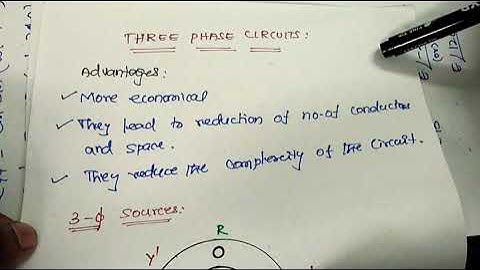 THREE PHASE CIRCUITS:
Advantages:
✓ More economical
✓ They lead to reduction of no. of conductors
and space.
✓ They reduce the complexity of the circuit.
3-ϕ Sources:
R
Y'